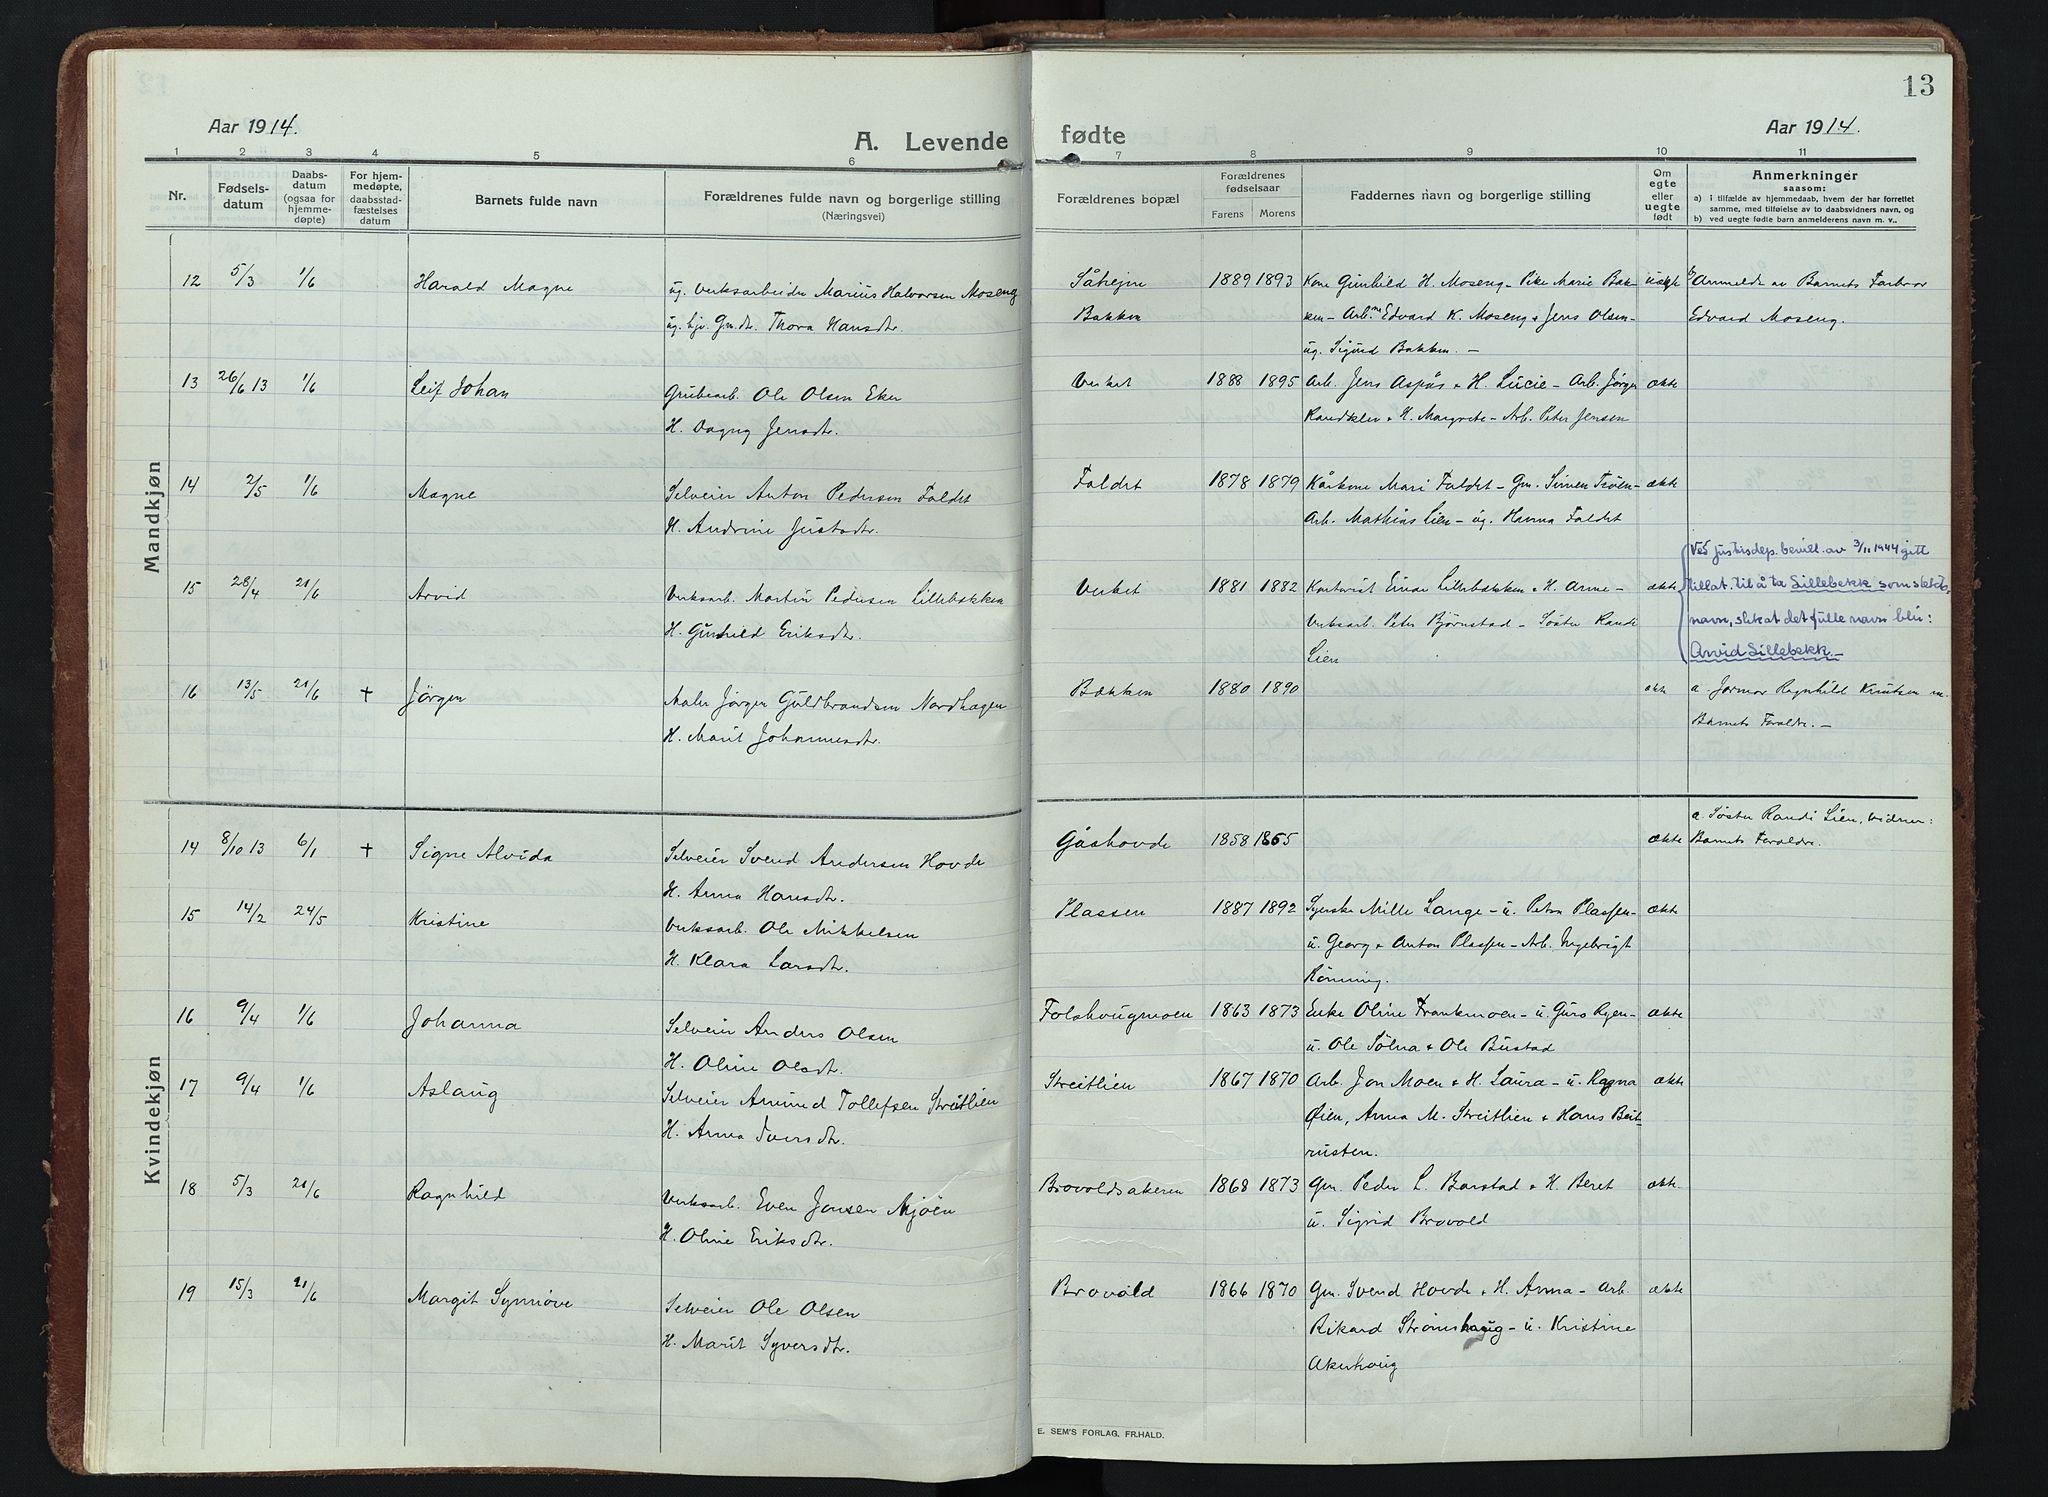 13
Aar 1914.
A. Levende fødte
Aar 1914.
1 2 3 4 5 6 7 8 9 10 11
Nr.
Fødselsdatum
Daabsdatum (ogsaa for hjemmedøpte)
For hjemmedøpte, daabsstadfæstelses datum
Barnets fulde navn
Forældrenes fulde navn og borgerlige stilling (Næringsvei)
Forældrenes bopæl
Forældrenes fødselsaar
Farens Morens
Faddernes navn og borgerlige stilling
Om egte eller uegte født
Anmerkninger
saasom:
a) i tilfælde av hjemmedaab, hvem der har forrettet samme, med tilføielse av to daabsvidners navn, og
b) ved uegte fødte barn anmelderens navn m. v..
Mandkjøn
12 5/3 1/6 Harald Magne ug. Verksarbeider Marius Halvorsen Moseng Såhejne 1889 1893 Kone Gunhild H. Moseng - Pike Marie Bak- uekte b/ Anmeldt av Barnets Farbror
ug. hjv. Gm.dr. Thora Hansdtr. Bakken ken - Arb.ne Edvard K. Moseng & Jens Olsen - Edvard Moseng.
ug. Sigurd Bakken. -
13 26/6 13 1/6 Leif Johan Grubearb. Ole Olsen Eker Verket 1888 1895 Arb. Jens Aspås & H. Lucie - Arb. Jørgen ekte
H. Dagny Jensdtr. Randklev & H. Margrete - Arb. Peter Jensen
14 2/5 1/6 Magne Selveier Anton Pedersen Faldet Faldet 1878 1879 Kårkone Mari Faldet - Gm. Simen Trøen - ekte
H. Andrine Justsdtr. Arb. Mathias Lien - ug. Hanna Faldet
15 28/4 21/6 Arvid Verksarb. Martin Pedersen Lillebækken Verket 1881 1882 Kontorist Einar Lillebækken & H. Anne - ekte
H. Gunhild Eriksdtr. Verksarb. Peter Bjørnstad - Søster Randi
Lien
Ved Justisdep. bevill. av 3/11 1944 gitt
tillat. til å ta Lillebekk som slekts-
navn, slik at det fulle navn blir:
Arvid Lillebekk. -
16 13/5 21/6 † Jörgen Maler Jørgen Guldbrandsen Nordhagen Bækken 1880 1890 ekte a. Jormor Ragnhild Knutsen m.
H. Marit Johannesdtr. Barnets Foreldre. -
Kvindekjøn
14 8/10 13 6/1 † Signe Alvida Selveier Svend Andersen Hovde Gåshovde 1858 1865 ekte a. Søster Randi Lien, vidner:
H. Anna Hansdtr. Barnets Foreldre.
15 14/2 24/5 Kristine Verksarb. Ole Mikkelsen Plassen 1887 1892 Syerske Mille Lange - u. Petra Plassen - ekte
H. Klara Larsdtr. u. Georg & Anton Plassen - Arb. Ingebrigt
Rönning.
16 9/4 1/6 Johanna Selveier Anders Olsen Folshougmoen 1863 1873 Enke Oline Frankmoen - u. Guro Ryen - ekte
H. Oline Olsdt. u. Ole Sølna & Ole Bustad
17 9/4 1/6 Aslaug Selveier Amund Tollefsen Streitlien Streitlien 1867 1870 Arb. Jon Moen & H. Laura - u. Ragna ekte
H. Anna Iversdtr. Øien, Anna M. Streitlien & Hans Beit-
rusten.
18 5/3 21/6 Ragnhild Verksarb. Even Jonsen Mjöen Brovoldsakeren 1868 1873 Gm. Peder L. Barstad & H. Beret ekte
H. Oline Eriksdtr. u. Sigrid Brovold
19 15/3 21/6 Margit Synnöve Selveier Ole Olsen Brovold 1866 1870 Gm. Svend Hovde & H. Anna - Arb. ekte
H. Marit Syversdtr. Rikard Strömshaug - u. Kristine
Akerhoug
E. SEM'S FORLAG, FR.HALD.